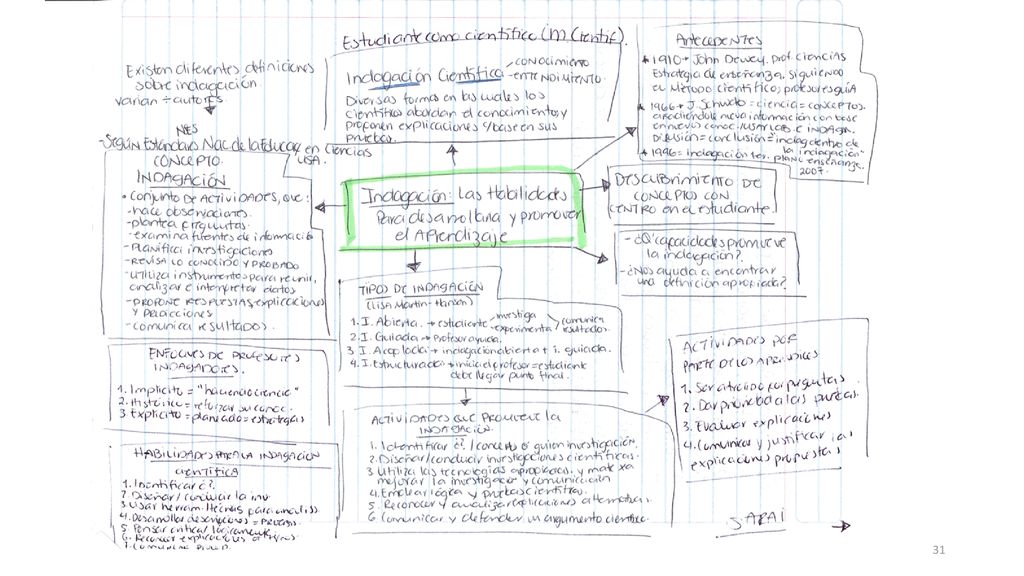 Estudiante como científico (m. Cientif).
Existen diferentes definiciones
sobre indagación
varian ÷ autores.
NES
-Según Estandars Nac de la Educac en Ciencias
USA.
Indagación Científica
conocimiento
ENTENDIMIENTO.
Diversas formas en las cuales los
científicos abordan el conocimiento y
proponen explicaciones c/base en sus
pruebas.
Antecedentes
1910 → John Dewey, prof. ciencias
Estrategia de enseñanza, siguiendo
el Método científico, profesor guía
1966 → J. = ciencia = conceptos.
añadiéndole nueva información con base
en nuevo conoc.
conclusión =
la indagación"
1996 = Indagación
2007.
CONCEPTO
INDAGACIÓN
• conjunto de Actividades, que:
- hace observaciones.
- plantea preguntas.
- examina fuentes de información
- Planifica investigaciones
- Revisa lo conocido y probado
- utiliza instrumentos para reunir,
analizar e interpretar datos
- PROPONE RESPUESTAS, explicaciones
y predicciones
- comunica resultados.
Indagación: Las Habilidades
Para desarrollarla y promover
el Aprendizaje
DESCUBRIMIENTO DE
CONCEPTO CON
CENTRO en el estudiante.
- ¿Q' capacidades promueve
la indagación?
- ¿Nos ayuda a encontrar
una definición apropiada?
TIPOS DE INDAGACIÓN
(LISA Martin-Hansen)
1. I. Abierta. → estudiante
investiga
experimenta
comunica
resultados.
2. I. Guiada → Profesor ayuda.
3 I. Acoplada → indagación abierta + i. guiada.
4. I. Estructurada → inicia el profesor = estudiante
debe llegar punto final.
ENFOQUES DE PROFESORES
INDAGADORES.
1. Implícito = "haciendo ciencia"
2. Histórico =
3 Explícito = planeado = estrategias
ACTIVIDADES POR
PARTE DE LOS APRENDICES
1. Ser atraído por preguntas
2. Dar prioridad a las pruebas.
3. Evaluar explicaciones
4. Comunicar y justificar las
explicaciones propuestas
ACTIVIDADES QUE PROMUEVE LA
INDAGACIÓN.
1. Identificar ¿? / concepto q' guíen investigación.
2. Diseñar/conducir investigaciones científicas.
3 Utiliza las tecnologías apropiadas, y mate xa
mejorar la investigación y comunicación
4. Emplear lógica y pruebas científicas.
5. Reconocer y analizar explicaciones alternativas.
6 Comunicar y defender un argumento científico.
HABILIDADES PARA LA INDAGACIÓN
científica
1. Identificar ¿?.
2 Diseñar / conducir la inv
3 Usar herram. técnicas para análisis
4. Desarrollar descripciones = pruebas.
5 Pensar crítica/ lógicamente.
6. Reconocer explicaciones
7. Comunicar
SARAI
31